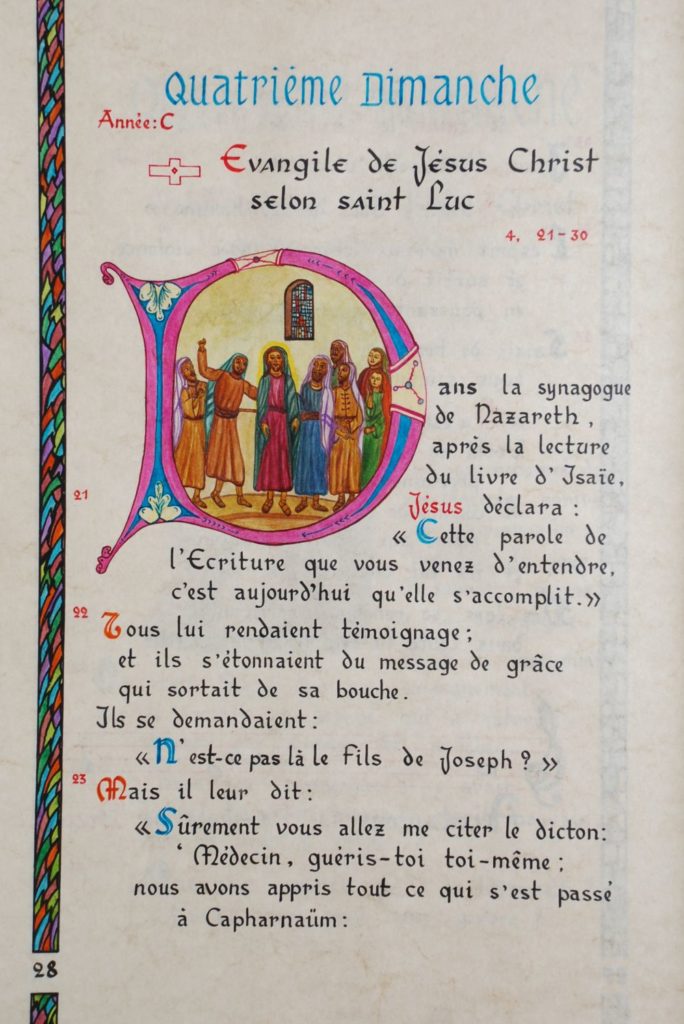 Quatriéme Dimanche
Année: C
Evangile de Jésus Christ
selon saint Luc
4, 21-30
Dans la synagogue
de Nazareth,
après la lecture
du livre d'Isaïe,
21 Jésus déclara :
« Cette parole de
l'Ecriture que vous venez d'entendre,
c'est aujourd'hui qu'elle s'accomplit.»
22 Tous lui rendaient témoignage ;
et ils s'étonnaient du message de grâce
qui sortait de sa bouche.
Ils se demandaient :
« N'est-ce pas là le fils de Joseph ? »
23 Mais il leur dit :
« Sûrement vous allez me citer le dicton:
' Médecin, guéris-toi toi-même ;
nous avons appris tout ce qui s'est passé
à Capharnaüm :
28